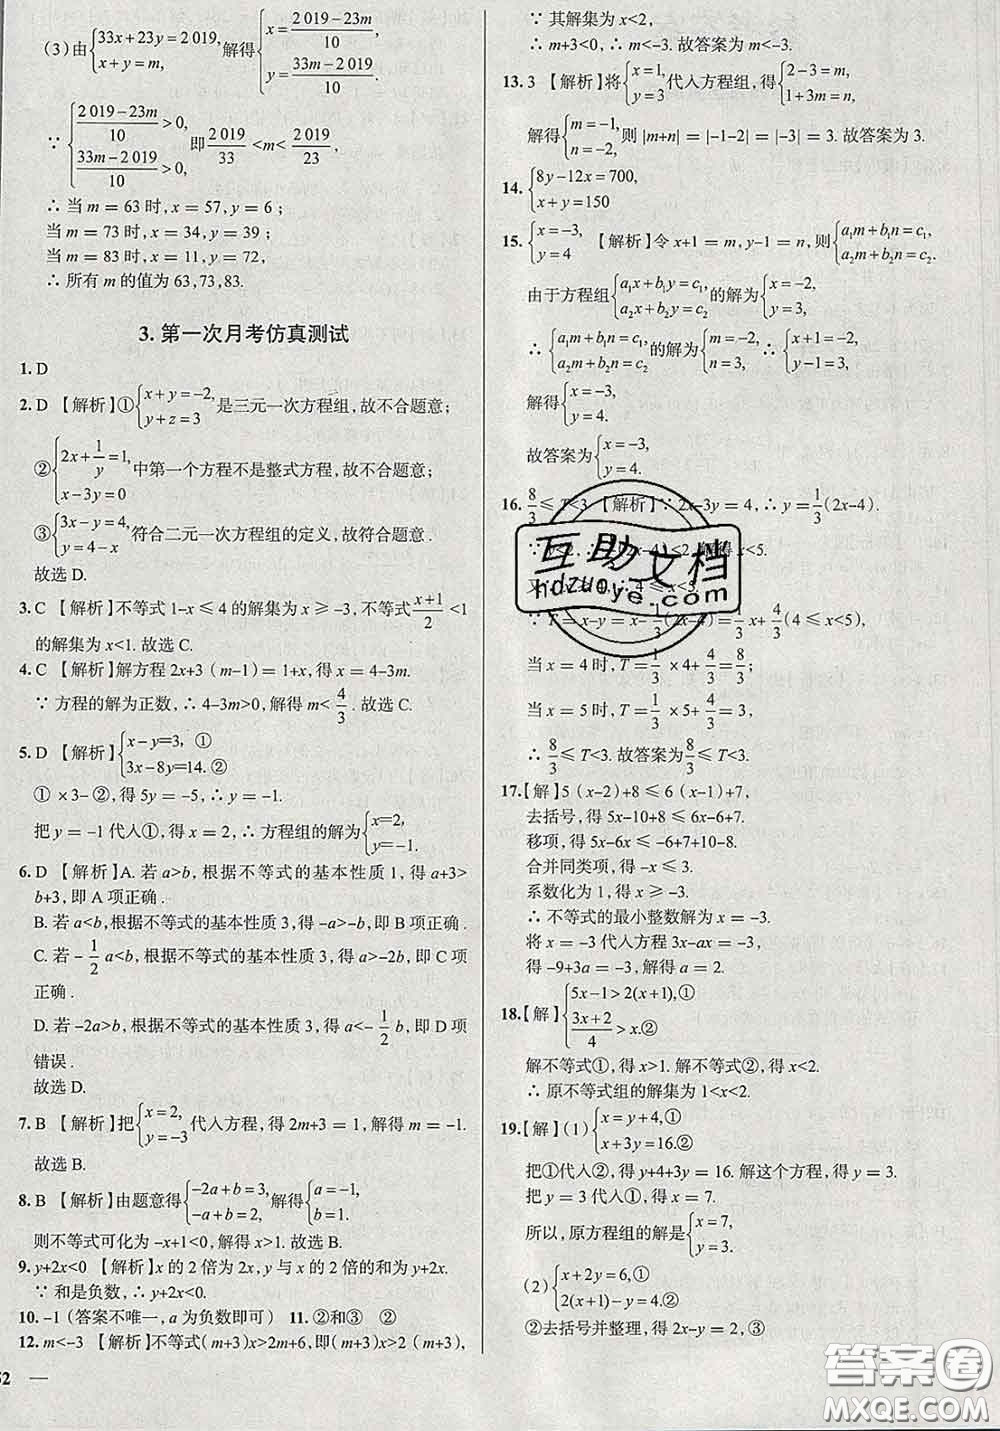 (3)由{33x+23y=2 019, x+y=m, 解得{x=(2 019-23m)/10, y=(33m-2 019)/10,
∵ {(2 019-23m)/10>0, (33m-2 019)/10>0, 即2 019/33<m<2 019/23,
∴ 当 m = 63 时, x = 57, y = 6;
当 m = 73 时, x = 34, y = 39;
当 m = 83 时, x = 11, y = 72,
∴ 所有 m 的值为 63,73,83.
3. 第一次月考仿真测试
1. D
2. D 【解析】①{x+y=-2, y+z=3 是三元一次方程组,故不合题意;
②{2x+1/y=1, x-3y=0 中第一个方程不是整式方程,故不合题意;
③{3x-y=4, y=4-x 符合二元一次方程组的定义,故符合题意.
故选 D.
3. C 【解析】不等式 1-x ≤ 4 的解集为 x ≥ -3,不等式(x+1)/2 <1
的解集为 x<1. 故选 C.
4. C 【解析】解方程 2x+3 (m-1) = 1+x, 得 x = 4-3m.
∵ 方程的解为正数, ∴ 4-3m>0, 解得 m< 4/3 .故选 C.
5. D 【解析】{x-y=3, ① 3x-8y=14. ②
① ×3- ②, 得 5y = -5, ∴ y = -1.
把 y = -1 代人①, 得 x = 2, ∴ 方程组的解为{x=2, y=-1.
6. D 【解析】A. 若 a>b, 根据不等式的基本性质 1, 得 a+3>
b+3, 即 A 项正确 .
B. 若 a<b, 根据不等式的基本性质 3, 得 -a>-b, 即 B 项正确 .
C. 若 -1/2 a<b, 根据不等式的基本性质 3, 得 a>-2b, 即 C 项
正确 .
D. 若 -2a>b, 根据不等式的基本性质 3, 得 a<- 1/2 b, 即 D 项
错误 .
故选 D.
7. B 【解析】把{x=2, y=-3 代人方程, 得 2m+3 = 1, 解得 m = -1.
故选 B.
8. B 【解析】由题意得{-2a+b=3, -a+b=2, 解得{a=-1, b=1.
则不等式可化为 -x+1<0, 解得 x>1. 故选 B.
9. y+2x<0 【解析】x 的 2 倍为 2x, y 与 x 的 2 倍的和为 y+2x.
∵ 和是负数, ∴ y+2x<0.
10. -1 (答案不唯一, a 为负数即可) 11. ②和③ ②
12. m<-3 【解析】不等式(m+3)x>2m+6, 即(m+3)x>2 (m+3),
52
∵ 其解集为 x<2,
∴ m+3<0, ∴ m<-3. 故答案为 m<-3.
13. 3 【解析】将{x=1, y=3 代人方程组, 得{2-3=m, 1+3m=n,
解得{m=-1, n=-2, 则 |m+n| = |-1-2| = |-3| = 3. 故答案为 3.
14. {8y-12x=700, x+y=150
15. {x=-3, y=4 【解析】令 x+1 = m, y-1 = n, 则{a₁m+b₁n=c₁, a₂m+b₂n=c₂.
由于方程组{a₁x+b₁y=c₁, a₂x+b₂y=c₂ 的解为{x=-2, y=3,
∴ {a₁m+b₁n=c₁, a₂m+b₂n=c₂ 的解为{m=-2, n=3, ∴ {x+1=-2, y-1=3,
解得{x=-3, y=4.
故答案为{x=-3, y=4.
16. 8/3 ≤ T<3 【解析】∵ 2x-3y = 4, ∴ y = 1/3(2x-4).
<2, 解得 x<5.
∴ 4 ≤ x<5
∵ T = x-y = x- 1/3 (2x-4) = 1/3 x+ 4/3 (4 ≤ x<5),
当 x = 4 时, T = 1/3 ×4+ 4/3 = 8/3;
当 x = 5 时, T = 1/3 ×5+ 4/3 = 3,
∴ 8/3 ≤ T<3. 故答案为 8/3 ≤ T<3.
17.【解】5 (x-2)+8 ≤ 6 (x-1)+7,
去括号, 得 5x-10+8 ≤ 6x-6+7,
移项, 得 5x-6x ≤ -6+7+10-8.
合并同类项, 得 -x ≤ 3.
系数化为 1, 得 x ≥ -3.
∴ 不等式的最小整数解为 x = -3.
将 x = -3 代人方程 3x-ax = -3,
得 -9+3a = -3, 解得 a = 2.
18.【解】{5x-1>2(x+1),① (3x+2)/4>x.②
解不等式①, 得 x>1. 解不等式②, 得 x<2.
∴ 原不等式组的解集为 1<x<2.
19.【解】(1){x=y+4,① x+3y=16.②
把①代人②, 得 y+4+3y = 16. 解这个方程, 得 y = 3.
把 y = 3 代人①, 得 x = 7.
所以, 原方程组的解是{x=7, y=3.
(2){x+2y=6,① 2(x+1)-y=4.②
②去括号并整理, 得 2x-y = 2,③
互助文档
hdzuoye.com
答案卷
MXQE.COM